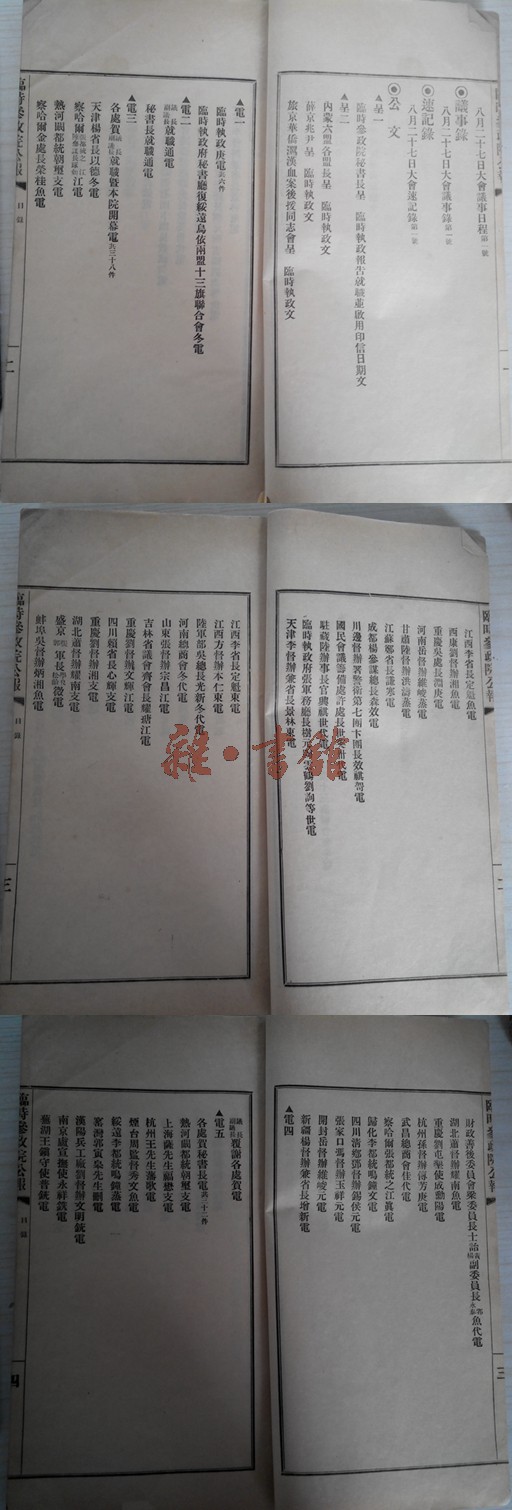 臨時參政院公報
八月二十七日大會議事日程第一號
◉議事錄
八月二十七日大會議事錄第一號
◉速記錄
八月二十七日大會速記錄第一號
◉公文
▲呈一
臨時參政院秘書長呈 臨時執政報告就職並啟用印信日期文
▲呈二
內蒙六盟各盟長呈 臨時執政文
薛京兆尹呈 臨時執政文
旅京華僑滬漢血案後援同志會呈 臨時執政文
一
▲電一
臨時執政庚電共六件
臨時執政府秘書廳復綏遠烏依兩盟十三旗聯合會冬電
▲電二
議長副議長就職通電
秘書長就職通電
▲電三
各處賀議長副議長就職暨本院開幕電共三十八件
天津楊省長以德冬電
江電
熱河闞都統朝璽支電
察哈爾金處長榮桂魚電
臨時參政院公報 目錄
二
臨時參政院公報
江西李省長定魁魚電
西康劉督辦湘魚電
重慶吳處長潤庚電
河南岳督辦維峻蒸電
甘肅陸督辦洪濤蒸電
江蘇鄭省長謙寒電
成都楊參謀總長森效電
川邊督辦署警衛第七團卞團長效祺哿電
國民會議籌備處許處長世英世電
駐藏陸辦事長官興祺世代電
臨時執政府張軍務廳長樹元劉詢等世電
天津李督辦兼省長景林東電
二
江西李省長定魁東電
江西方督辦本仁東電
陸軍部吳總長光新冬代電
河南總商會冬代電
山東張督辦宗昌江電
吉林省議會齊會長耀瑭江電
重慶劉督辦文輝江電
四川賴省長心輝支電
重慶劉督辦湘支電
湖北蕭督辦耀南支電
盛京張學良郭松齡軍長微電
蚌埠吳督辦炳湘魚電
臨時參政院公報 目錄
三
臨時參政院公報
財政善後委員會梁委員長士詒副委員長魚代電
湖北蕭督辦耀南魚電
重慶劉屯墾使成勳陽電
杭州孫督辦傳芳庚電
武昌總商會佳代電
察哈爾張都統之江真電
歸化李都統鳴鐘文電
四川清鄉鄧督辦錫侯元電
張家口馮督辦玉祥元電
開封岳督辦維峻元電
新疆楊督辦兼省長增新電
▲電四
三
議長副議長覆謝各處賀電
▲電五
各處賀秘書長電共二十二件
熱河闞都統朝璽支電
上海薩先生福懋支電
杭州王先生蓮歌電
煙台周監督秀文魚電
綏遠李都統鳴鐘蒸電
窰灣郭寅皋先生嗣電
漢陽兵工廠劉督辦文明銑電
南京盧宣撫使永祥銑電
蕪湖王鎮守使普銑電
臨時參政院公報 目錄
四
雜·書館